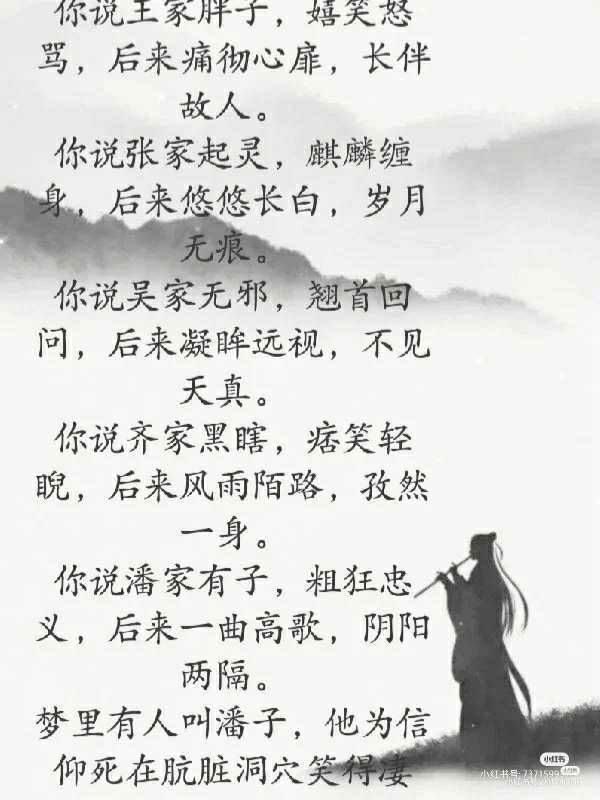 你说王家胖子，嬉笑怒
骂，后来痛彻心扉，长伴
故人。
你说张家起灵，麒麟缠
身，后来悠悠长白，岁月
无痕。
你说吴家无邪，翘首回
问，后来凝眸远视，不见
天真。
你说齐家黑瞎，痞笑轻
睨，后来风雨陌路，孜然
一身。
你说潘家有子，粗狂忠
义，后来一曲高歌，阴阳
两隔。
梦里有人叫潘子，他为信
仰死在肮脏洞穴笑得凄
小红书